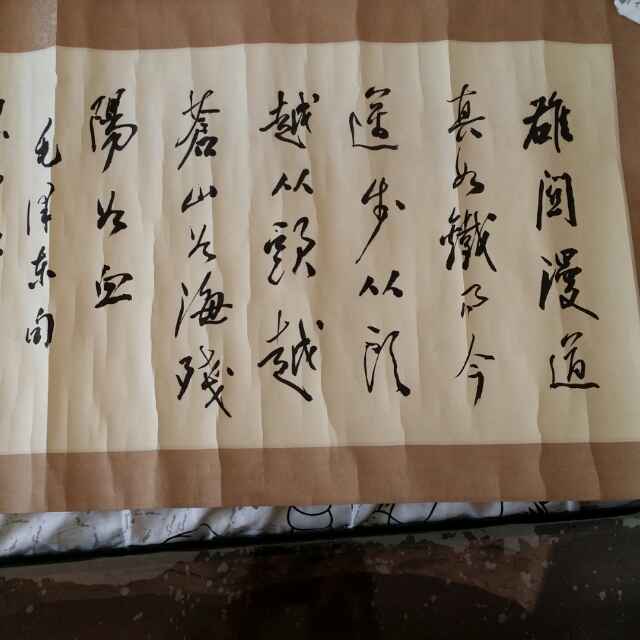 雄關漫道
真如鐵而今
邁步从頭
越从頭越
蒼山如海殘
陽如血
毛澤東句